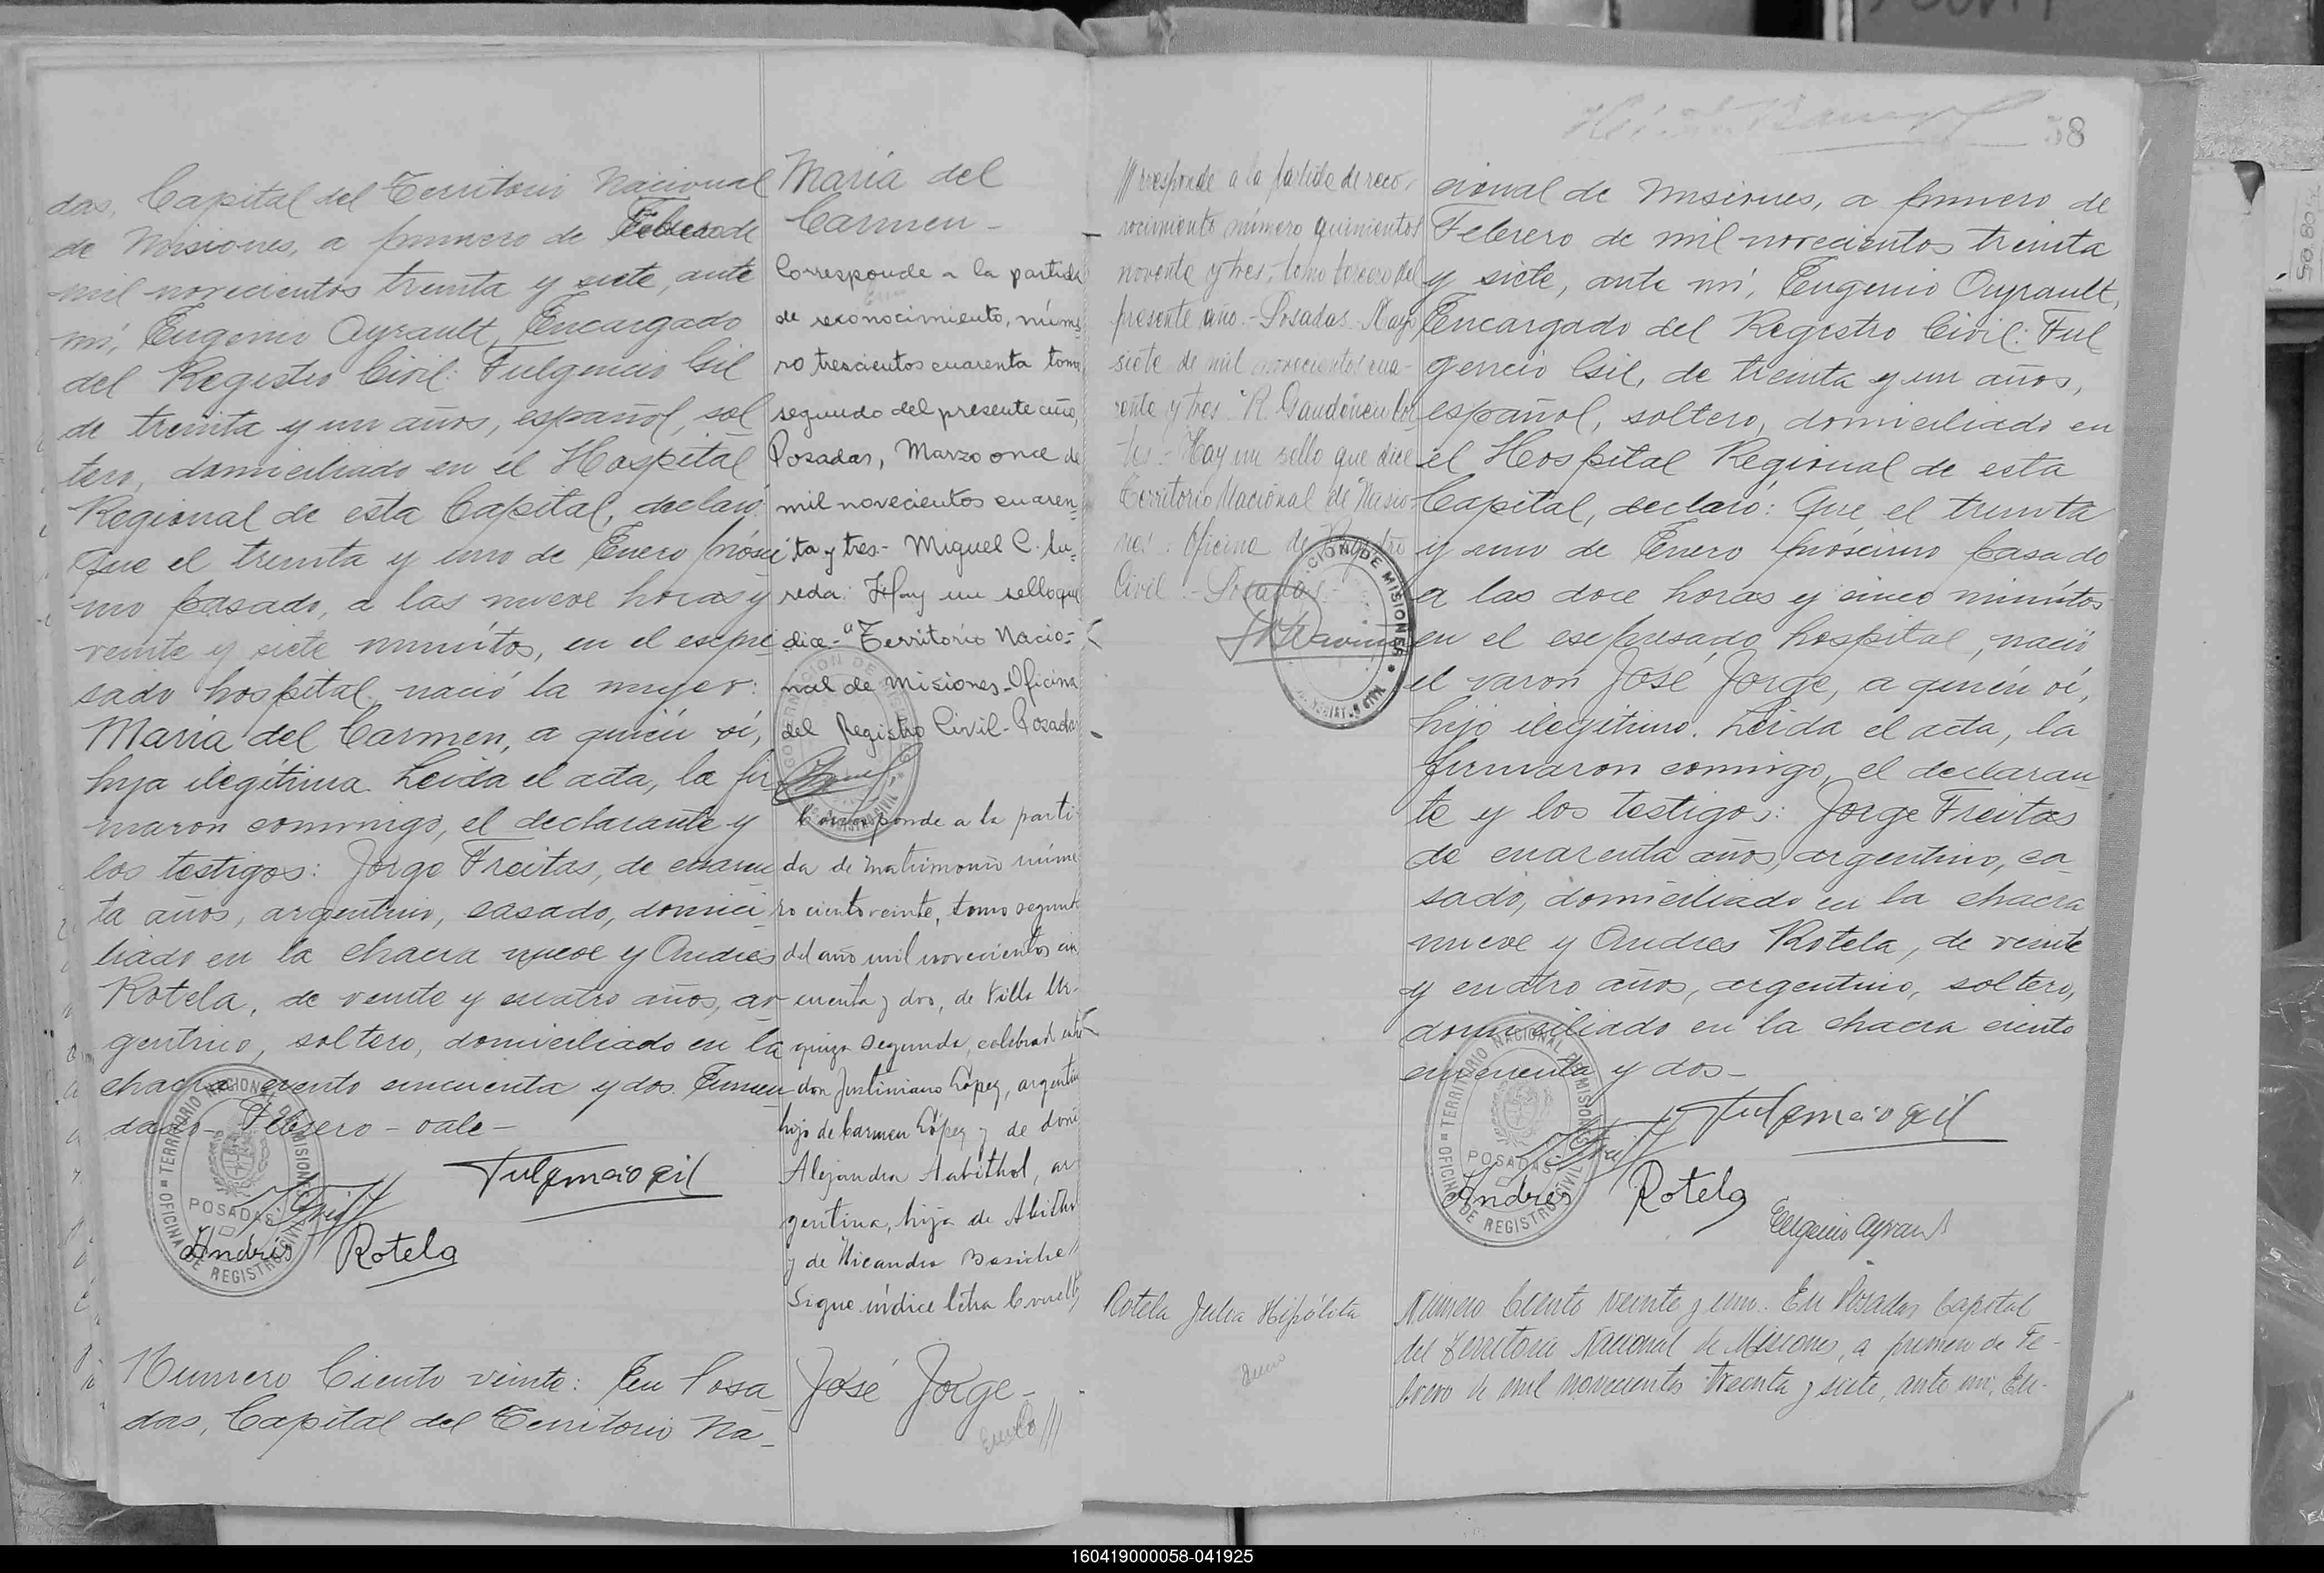 das, Capital del Territorio Nacional
de Misiones, a primero de Febrero de
mil novecientos treinta y siete, ante
mí, Eugenio Ayrault, Encargado
del Registro Civil: Fulgencio Gil
de treinta y un años, español, sol
tero, domiciliado en el Hospital
Regional de esta Capital, declaró:
Que el treinta y uno de Enero próxi
mo pasado, a las nueve horas y
veinte y siete minutos, en el expre
sado hospital, nació la mujer:
María del Carmen, a quién ví,
hija ilegítima. Leida el acta, la fir
maron conmigo, el declarante y
los testigos: Jorge Freitas, de cuaren
ta años, argentino, casado, domici
liado en la chacra nueve y Andres
Rotela, de veinte y cuatro años, ar
gentino, soltero, domiciliado en la
chacra ciento cincuenta y dos. Enmen
dado - Febrero - vale -
Fulgencio Gil
Andrés Rotela
TERRITORIO NACIONAL DE MISIONES
POSADAS
OFICINA DE REGISTRO CIVIL
Numero Ciento veinte: En Posa
das, Capital del Territorio Na-
María del
Carmen -
Corresponde a la partida
de reconocimiento, núme
ro trescientos cuarenta tomo
segundo del presente año,
Posadas, Marzo once de
mil novecientos cuaren
ta y tres - Miguel C. Lu-
reda: Hay un sello que
dice - "Territorio Nacio-
nal de Misiones - Oficina
del Registro Civil - Posadas
Corresponde a la parti
da de matrimonio núme
ro ciento veinte, tomo segundo
del año mil novecientos cin
cuenta y dos, de Villa Ur-
quiza segunda, celebrad entre
don Justiniano López, argentin
hijo de Carmen López y de doña
Alejandra Aabithol, ar
gentina, hija de
y de Nicandra
Sigue índice letra C vuelta
José Jorge -
Co///
58
///rresponde a la partida de reco-
nocimiento número quinientos
noventa y tres, tomo tercero del
presente año. - Posadas Mayo
siete de mil novecientos cua-
renta y tres. "R. Gaudencio Cor
tes - Hay un sello que dice
Territorio Nacional de Misio-
nes : Oficina de Registro
Civil - Posadas -
Rotela Julia Hipólita
Enero
cional de Misiones, a primero de
Febrero de mil novecientos treinta
y siete, ante mí, Eugenio Ayrault,
Encargado del Registro Civil: Ful
gencio Gil, de treinta y un años,
español, soltero, domiciliado en
el Hospital Regional de esta
Capital, declaró: Que el treinta
y uno de Enero próximo pasado
a las doce horas y cinco minutos
en el expresado hospital, nació
el varón José Jorge, a quién ví,
hijo ilegítimo. Leída el acta, la
firmaron conmigo, el declaran
te y los testigos: Jorge Freitas
de cuarenta años, argentino, ca
sado, domiciliado en la chacra
nueve y Andres Rotela, de veinte
y cuatro años, argentino, soltero,
domiciliado en la chacra ciento
cincuenta y dos -
Fulgencio Gil
Andrés Rotela
Eugenio Ayrault
TERRITORIO NACIONAL DE MISIONES
POSADAS
OFICINA DE REGISTRO CIVIL
Número Ciento veinte y uno. En Posadas Capital
del Territorio Nacional de Misiones, a primero de Fe-
brero de mil novecientos treinta y siete, ante mí, Eu-
160419000058-041925